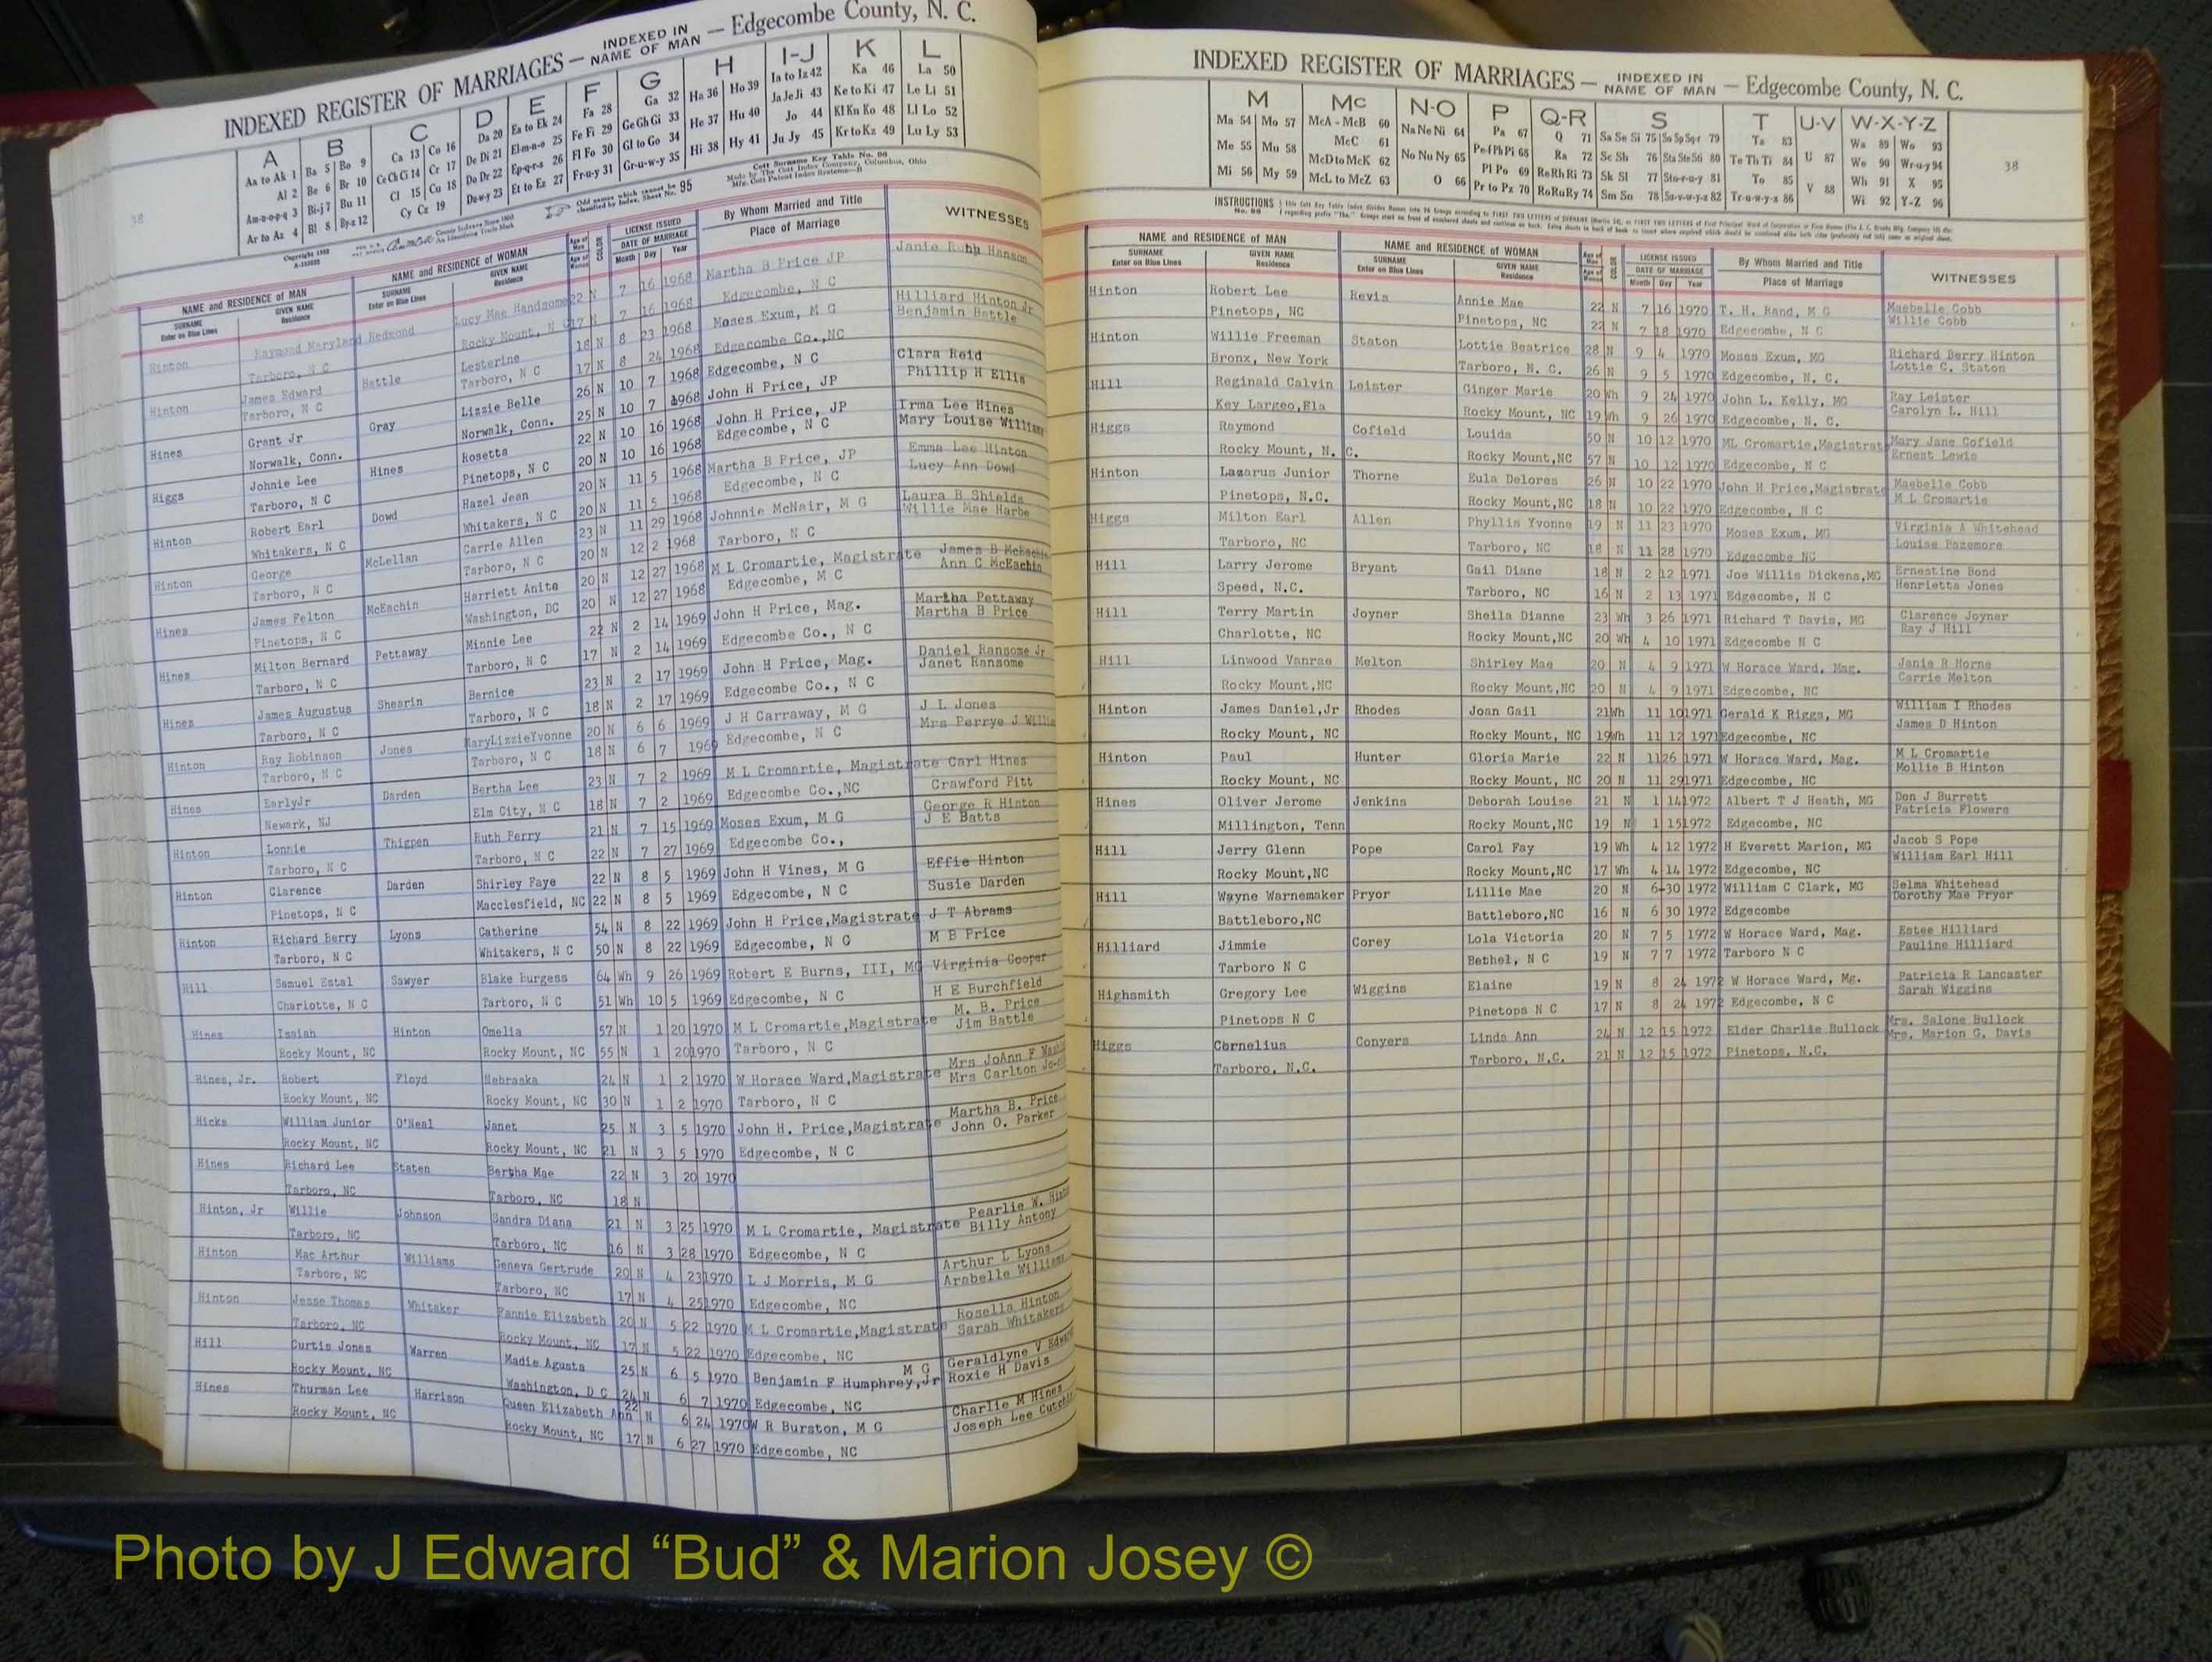 INDEXED REGISTER OF MARRIAGES — INDEXED IN NAME OF MAN — Edgecombe County, N. C.
A B C D E F G H I-J K L
Aa to Ak 1 Ba 5 Bo 9 Ca 13 Co 16 Da 20 Ea to Ek 24 Fa 28 Ga 32 Ha 36 Ho 39 Ia to Iz 42 Ka 46 La 50
Al 2 Be 6 Br 10 Ce Ch Ci 14 Cr 17 De Di 21 El-m-n-o 25 Fe Fi 29 Ge Gh Gi 33 He 37 Hu 40 Ja Je Ji 43 Ke to Ki 47 Le Li 51
Am-n-o-p-q 3 Bi-j 7 Bu 11 Cl 15 Cu 18 Do Dr 22 Ep-q-r-s 26 Fl Fo 30 Gl to Go 34 Hi 38 Hy 41 Jo 44 Kl Kn Ko 48 Ll Lo 52
Ar to Az 4 Bl 8 By-z 12 Cy Cz 19 Du-w-y 23 Et to Ez 27 Fr-u-y 31 Gr-u-w-y 35 Ju Jy 45 Kr to Kz 49 Lu Ly 53
38
NAME and RESIDENCE of MAN NAME and RESIDENCE of WOMAN COLOR LICENSE ISSUED By Whom Married and Title WITNESSES
SURNAME GIVEN NAME SURNAME GIVEN NAME DATE OF MARRIAGE Place of Marriage
Enter on Blue Lines Residence Enter on Blue Lines Residence Month Day Year
Hinton Raymond Maryland Redmond Lucy Mae Handsome 22 N 7 16 1968 Martha B Price JP Janie Ruth Hanson
Tarboro, N C Rocky Mount, N C 17 N 7 16 1968 Edgecombe, N C
Hinton James Edward Battle Lesterine 18 N 8 23 1968 Moses Exum, M G Hilliard Hinton Jr
Tarboro, N C Tarboro, N C 17 N 8 24 1968 Edgecombe Co.,NC Benjamin Battle
Hines Grant Jr Gray Lizzie Belle 26 N 10 7 1968 Edgecombe, N C Clara Reid
Norwalk, Conn. Norwalk, Conn. 25 N 10 7 1968 John H Price, JP Phillip H Ellis
Higgs Johnie Lee Hines Rosetta 22 N 10 16 1968 John H Price, JP Irma Lee Hines
Tarboro, N C Pinetops, N C 20 N 10 16 1968 Edgecombe, N C Mary Louise William
Hinton Robert Earl Dowd Hazel Jean 20 N 11 5 1968 Martha B Price, JP Emma Lee Hinton
Whitakers, N C Whitakers, N C 20 N 11 5 1968 Edgecombe, N C Lucy Ann Dowd
Hinton George McLellan Carrie Allen 23 N 11 29 1968 Johnnie McNair, M G Laura B Shields
Tarboro, N C Tarboro, N C 20 N 12 2 1968 Tarboro, N C Willie Mae Harbe
Hines James Felton McEachin Harriett Anita 20 N 12 27 1968 M L Cromartie, Magistrate James B McEachin
Pinetops, N C Washington, DC 20 N 12 27 1968 Edgecombe, M C Ann C McEachin
Hines Milton Bernard Pettaway Minnie Lee 22 N 2 14 1969 John H Price, Mag. Martha Pettaway
Tarboro, N C Tarboro, N C 17 N 2 14 1969 Edgecombe Co., N C Martha B Price
Hines James Augustus Shearin Bernice 23 N 2 17 1969 John H Price, Mag. Daniel Ransome Jr
Tarboro, N C Tarboro, N C 18 N 2 17 1969 Edgecombe Co., N C Janet Ransome
Hinton Ray Robinson Jones MaryLizzieYvonne 20 N 6 6 1969 J H Carraway, M G J L Jones
Tarboro, N C Tarboro, N C 18 N 6 7 1969 Edgecombe, N C Mrs Perrye J
Hines EarlyJr Darden Bertha Lee 23 N 7 2 1969 M L Cromartie, Magistrate Carl Hines
Newark, NJ Elm City, N C 18 N 7 2 1969 Edgecombe Co.,NC Crawford Pitt
Hinton Lonnie Thigpen Ruth Perry 21 N 7 15 1969 Moses Exum, M G George R Hinton
Tarboro, N C Tarboro, N C 22 N 7 27 1969 Edgecombe Co., J E Batts
Hinton Clarence Darden Shirley Faye 22 N 8 5 1969 John H Vines, M G Effie Hinton
Pinetops, N C Macclesfield, NC 22 N 8 5 1969 Edgecombe, N C Susie Darden
Hinton Richard Berry Lyons Catherine 54 N 8 22 1969 John H Price,Magistrate J T Abrams
Tarboro, N C Whitakers, N C 50 N 8 22 1969 Edgecombe, N C M B Price
Hill Samuel Estal Sawyer Blake Burgess 64 Wh 9 26 1969 Robert E Burns, III, MG Virginia Cooper
Charlotte, N C Tarboro, N C 51 Wh 10 5 1969 Edgecombe, N C H E Burchfield
Hines Isaiah Hinton Omelia 57 N 1 20 1970 M L Cromartie,Magistrate M. B. Price
Rocky Mount, NC Rocky Mount, NC 55 N 1 20 1970 Tarboro, N C Jim Battle
Hines, Jr. Robert Floyd Nebraska 24 N 1 2 1970 W Horace Ward,Magistrate Mrs JoAnn F
Rocky Mount, NC Rocky Mount, NC 30 N 1 2 1970 Tarboro, N C Mrs Carlton
Hicks William Junior O'Neal Janet 25 N 3 5 1970 John H. Price,Magistrate Martha B. Price
Rocky Mount, NC Rocky Mount, NC 21 N 3 5 1970 Edgecombe, N C John O. Parker
Hines Richard Lee Staten Bertha Mae 22 N 3 20 1970
Tarboro, NC Tarboro, NC 18 N
Hinton, Jr Willie Johnson Sandra Diana 21 N 3 25 1970 M L Cromartie, Magistrate Pearlie W.
Tarboro, NC Tarboro, NC 16 N 3 28 1970 Edgecombe, N C Billy Antony
Hinton Mac Arthur Williams Geneva Gertrude 20 N 4 23 1970 L J Morris, M G Arthur L Lyons
Tarboro, NC Tarboro, NC 17 N 4 25 1970 Edgecombe, NC Arabelle Williams
Hinton Jesse Thomas Whitaker Fannie Elizabeth 20 N 5 22 1970 M L Cromartie,Magistrate Rosella Hinton
Tarboro, NC Rocky Mount, NC 17 N 5 22 1970 Edgecombe, NC Sarah Whitakers
Hill Curtis Jones Warren Madie Agusta 25 N 6 5 1970 Benjamin F Humphrey,Jr M G Geraldlyne V
Rocky Mount, NC Washington, D C 24 N 6 7 1970 Edgecombe, NC Roxie H Davis
Hines Thurman Lee Harrison Queen Elizabeth Ann 22 N 6 24 1970 W R Burston, M G Charlie M Hines
Rocky Mount, NC Rocky Mount, NC 17 N 6 27 1970 Edgecombe, NC Joseph Lee
INDEXED REGISTER OF MARRIAGES — INDEXED IN NAME OF MAN — Edgecombe County, N. C.
M Mc N-O P Q-R S T U-V W-X-Y-Z
Ma 54 Mo 57 McA - McB 60 Na Ne Ni 64 Pa 67 Q 71 Sa Se Si 75 So Sp Sq-r 79 Ta 83 U 87 Wa 89 Wo 93
Me 55 Mu 58 McC 61 No Nu Ny 65 Pe-f Ph Pi 68 Ra 72 Sc Sh 76 Sta Ste Sti 80 Te Th Ti 84 V 88 We 90 Wr-u-y 94
Mi 56 My 59 McD to McK 62 O 66 Pl Po 69 Re Rh Ri 73 Sk Sl 77 Sto-r-u-y 81 To 85 Wh 91 X 95
McL to McZ 63 Pr to Pz 70 Ro Ru Ry 74 Sm Sn 78 Su-v-w-y-z 82 Tr-u-w-y-z 86 Wi 92 Y-Z 96
38
NAME and RESIDENCE OF MAN NAME and RESIDENCE of WOMAN LICENSE ISSUED By Whom Married and Title WITNESSES
SURNAME GIVEN NAME SURNAME GIVEN NAME DATE OF MARRIAGE Place of Marriage
Enter on Blue Lines Residence Enter on Blue Lines Residence Month Day Year
Hinton Robert Lee Revis Annie Mae 22 N 7 16 1970 T. H. Hand, M G Maebelle Cobb
Pinetops, NC Pinetops, NC 22 N 7 18 1970 Edgecombe, N C Willie Cobb
Hinton Willie Freeman Staton Lottie Beatrice 28 N 9 4 1970 Moses Exum, MG Richard Berry Hinton
Bronx, New York Tarboro, N. C. 26 N 9 5 1970 Edgecombe, N. C. Lottie C. Staton
Hill Reginald Calvin Leister Ginger Marie 20 Wh 9 24 1970 John L. Kelly, MG Ray Leister
Key Largeo,Fla Rocky Mount, NC 19 Wh 9 26 1970 Edgecombe, N. C. Carolyn L. Hill
Higgs Raymond Cofield Louida 50 N 10 12 1970 ML Cromartie,Magistrat Mary Jane Cofield
Rocky Mount, N. C. Rocky Mount,NC 57 N 10 12 1970 Edgecombe, N C Ernest Lewis
Hinton Lazarus Junior Thorne Eula Delores 26 N 10 22 1970 John H Price,Magistrate Maebelle Cobb
Pinetops, N.C. Rocky Mount,NC 18 N 10 22 1970 Edgecombe, N C M L Cromartie
Higgs Milton Earl Allen Phyllis Yvonne 19 N 11 23 1970 Moses Exum, MG Virginia A Whitehead
Tarboro, NC Tarboro, NC 18 N 11 28 1970 Edgecombe NC Louise Pazemore
Hill Larry Jerome Bryant Gail Diane 18 N 2 12 1971 Joe Willis Dickens,MG Ernestine Bond
Speed, N.C. Tarboro, NC 16 N 2 13 1971 Edgecombe, N C Henrietta Jones
Hill Terry Martin Joyner Sheila Dianne 23 Wh 3 26 1971 Richard T Davis, MG Clarence Joyner
Charlotte, NC Rocky Mount,NC 20 Wh 4 10 1971 Edgecombe N C Ray J Hill
Hill Linwood Vanrae Melton Shirley Mae 20 N 4 9 1971 W Horace Ward, Mag. Janie R Horne
Rocky Mount,NC Rocky Mount,NC 20 N 4 9 1971 Edgecombe, NC Carrie Melton
Hinton James Daniel,Jr Rhodes Joan Gail 21 Wh 11 10 1971 Gerald K Riggs, MG William I Rhodes
Rocky Mount, NC Rocky Mount, NC 19 Wh 11 12 1971 Edgecombe, NC James D Hinton
Hinton Paul Hunter Gloria Marie 22 N 11 26 1971 W Horace Ward, Mag. M L Cromartie
Rocky Mount, NC Rocky Mount, NC 20 N 11 29 1971 Edgecombe, NC Mollie B Hinton
Hines Oliver Jerome Jenkins Deborah Louise 21 N 1 14 1972 Albert T J Heath, MG Don J Burrett
Millington, Tenn Rocky Mount,NC 19 N 1 15 1972 Edgecombe, NC Patricia Flowers
Hill Jerry Glenn Pope Carol Fay 19 Wh 4 12 1972 H Everett Marion, MG Jacob S Pope
Rocky Mount,NC Rocky Mount,NC 17 Wh 4 14 1972 Edgecombe, NC William Earl Hill
Hill Wayne Warnemaker Pryor Lillie Mae 20 N 6 30 1972 William C Clark, MG Selma Whitehead
Battleboro,NC Battleboro,NC 16 N 6 30 1972 Edgecombe Dorothy Mae Pryor
Hilliard Jimmie Corey Lola Victoria 20 N 7 5 1972 W Horace Ward, Mag. Estee Hilliard
Tarboro N C Bethel, N C 19 N 7 7 1972 Tarboro N C Pauline Hilliard
Highsmith Gregory Lee Wiggins Elaine 19 N 8 24 1972 W Horace Ward, Mg. Patricia R Lancaster
Pinetops N C Pinetops N C 17 N 8 24 1972 Edgecombe, N C Sarah Wiggins
Higgs Cornelius Conyers Linda Ann 24 N 12 15 1972 Elder Charlie Bullock Mrs. Salone Bullock
Tarboro, N.C. Tarboro, N.C. 21 N 12 15 1972 Pinetops, N.C. Mrs. Marion G. Davis
Photo by J Edward “Bud” & Marion Josey ©